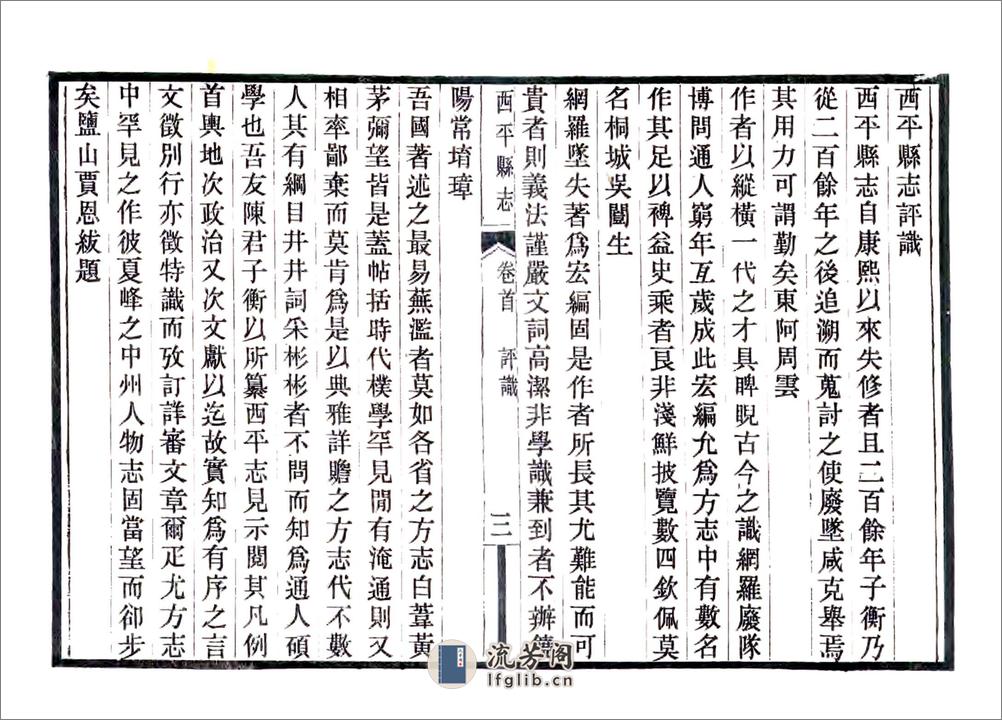 西平縣志評識
西平縣志自康熙以來失修者且二百餘年子衡乃
從二百餘年之後追溯而蒐討之使廢墜咸克舉焉
其用力可謂勤矣東阿周雲
作者以縱橫一代之才具睥睨古今之識網羅廢隊
博問通人窮年互歲成此宏編允為方志中有數名
作其足以裨益史乘者良非淺鮮披覽數四欽佩莫
名桐城吳闓生
網羅墜失著為宏編固是作者所長其尤難能而可
貴者則義法謹嚴文詞高潔非學識兼到者不辦饒
西平縣志
卷首 評識
三
陽常堉璋
吾國著述之最易蕪濫者莫如各省之方志白葦黃
茅彌望皆是蓋帖括時代樸學罕見閒有淹通則又
相率鄙棄而莫肯為是以典雅詳贍之方志代不數
人其有綱目井井詞采彬彬者不問而知為通人碩
學也吾友陳君子衡以所纂西平志見示閱其凡例
首輿地次政治又次文獻以迄故實知為有序之言
文徵別行亦徵特識而攷訂詳審文章爾疋尤方志
中罕見之作彼夏峰之中州人物志固當望而卻步
矣鹽山賈恩紱題
流芳閣
lfglib.cn